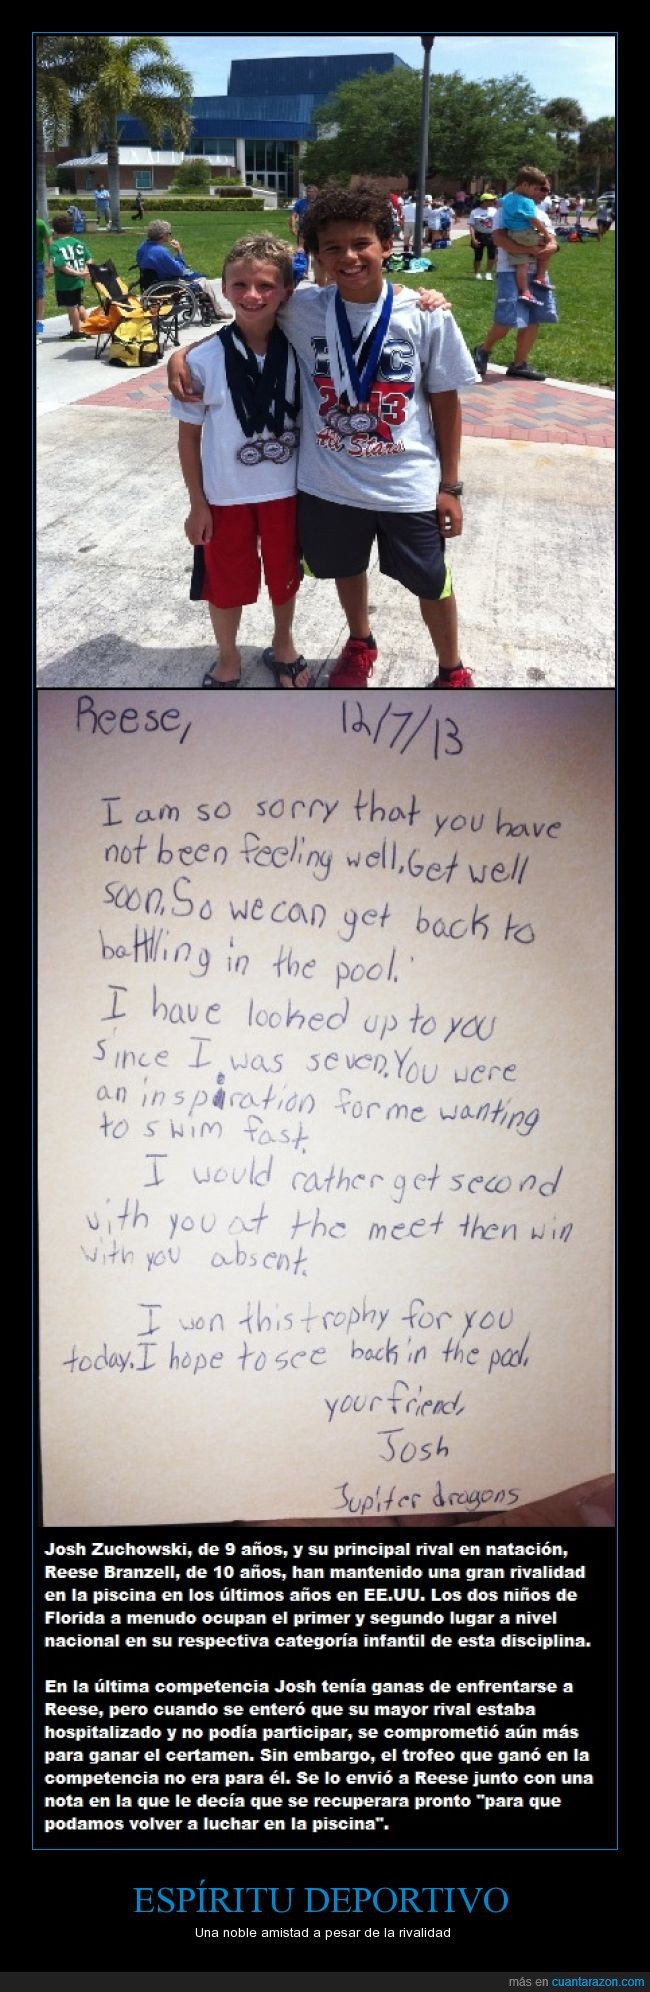 UC
2013
All Stars
Reese, 12/7/13
I am so sorry that you have
not been feeling well. Get well
soon. So we can get back to
battlling in the pool.
I have looked up to you
since I was seven. You were
an inspiration for me wanting
to swim fast.
I would rather get second
with you at the meet then win
with you absent.
I won this trophy for you
today. I hope to see back in the pool.
your friend,
Josh
Jupiter dragons
Josh Zuchowski, de 9 años, y su principal rival en natación,
Reese Branzell, de 10 años, han mantenido una gran rivalidad
en la piscina en los últimos años en EE.UU. Los dos niños de
Florida a menudo ocupan el primer y segundo lugar a nivel
nacional en su respectiva categoría infantil de esta disciplina.
En la última competencia Josh tenía ganas de enfrentarse a
Reese, pero cuando se enteró que su mayor rival estaba
hospitalizado y no podía participar, se comprometió aún más
para ganar el certamen. Sin embargo, el trofeo que ganó en la
competencia no era para él. Se lo envió a Reese junto con una
nota en la que le decía que se recuperara pronto "para que
podamos volver a luchar en la piscina".
ESPÍRITU DEPORTIVO
Una noble amistad a pesar de la rivalidad
más en cuantarazon.com